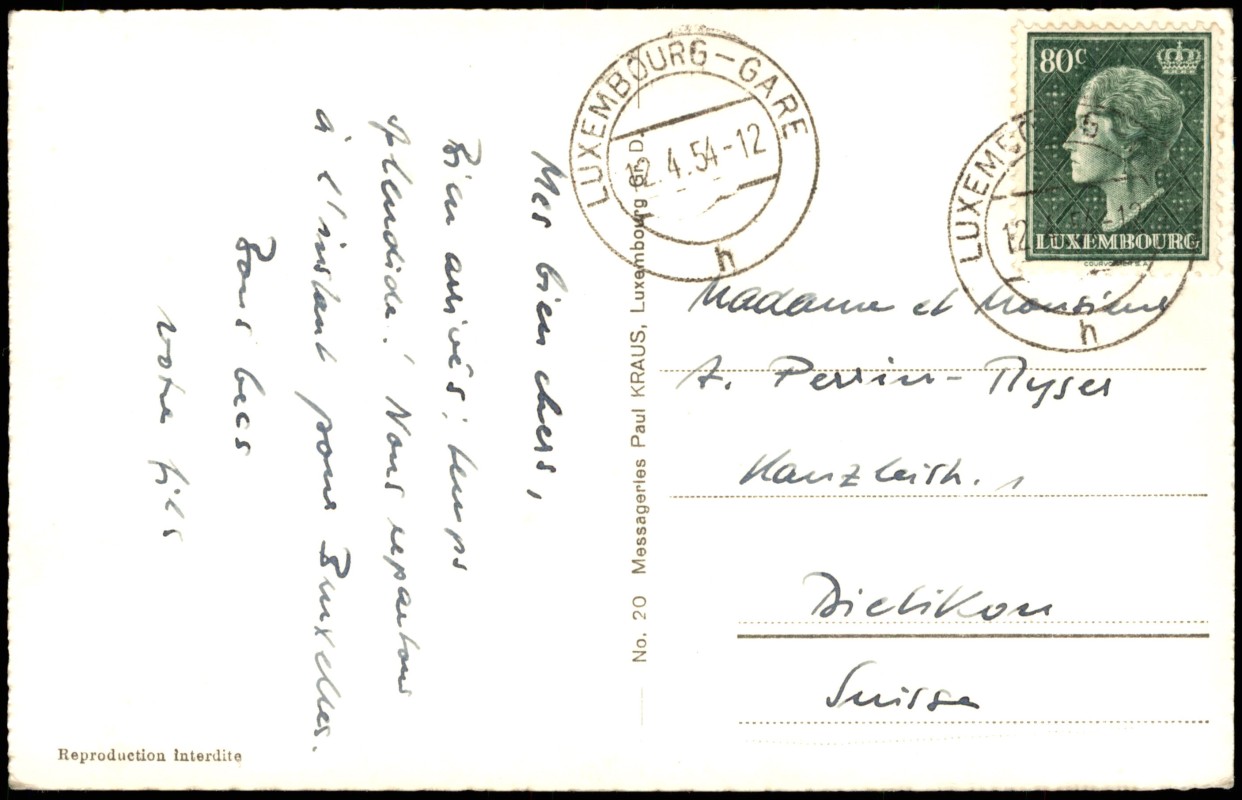 Mes bien chers,
Bien arrivés; temps
splendide! Nous repartons
à l'instant pour Bruxelles.
Bons becs
votre fils
Reproduction interdite
No. 20 Messageries Paul KRAUS, Luxembourg Gr. D.
LUXEMBOURG-GARE
12.4.54-12
h
80c
LUXEMBOURG
COURVOISIER S.A.
LUXEMBOURG
12.4.54-12
h
Madame et Monsieur
A. Perrin-Ryser
Kanzleistr. 1
Dietikon
Suisse